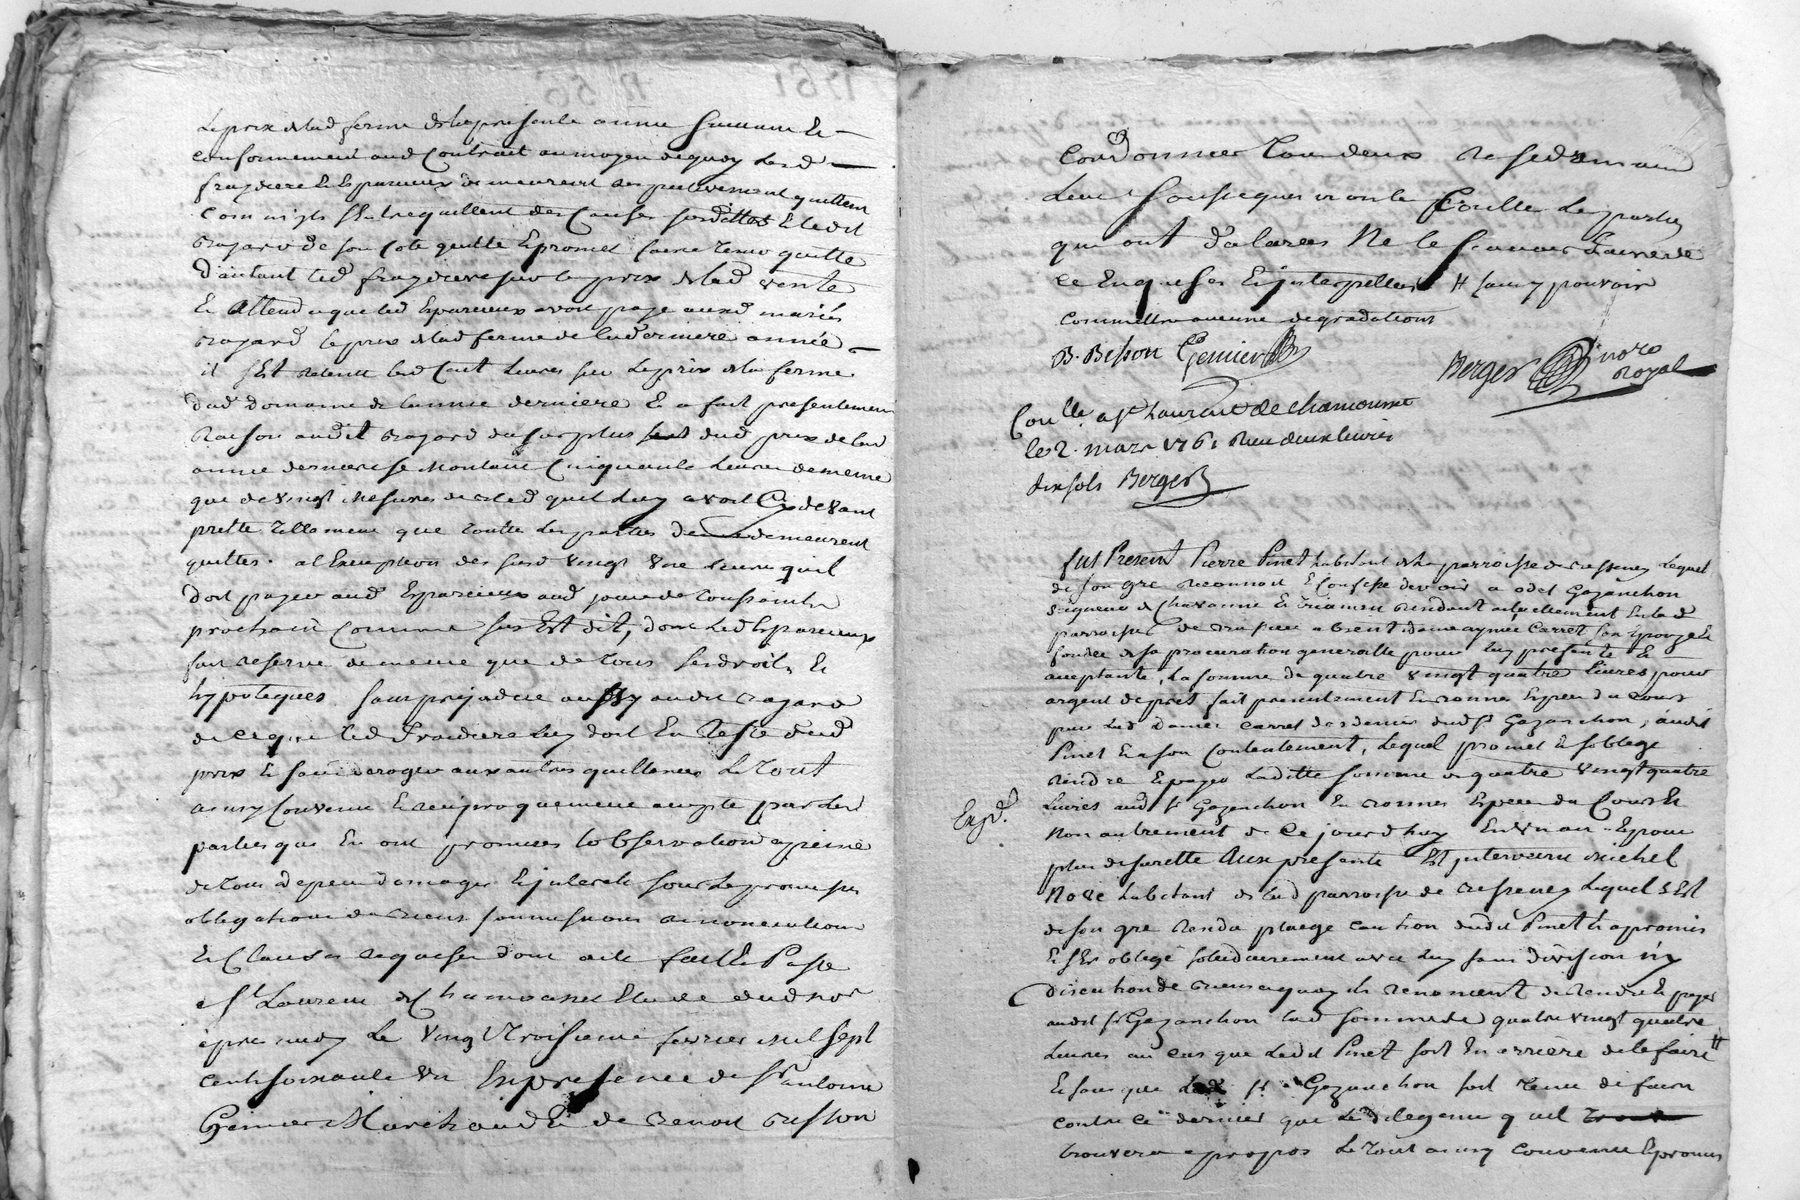 Le prix de lad ferme de la presente année suivant Et
conformement aud Contrait au moyen de quoy Led
fraydiere Et Eparcieux demeurent respectivement quittes
comm ils s'entrequittent des Causes susdittes Et ledit
Ragard de son Cote quitte Et promet faire tenir quitte
d'autant led fraydiere sur le prix de lad vente
Et Attendu que led Eparcieux avoit paye auxd mariés
Ragard le prix de lad ferme de lad derniere année
il s'Est retenu lesd Cent Livres sur Le prix de la ferme
dud domaine de l'année derniere Et a fait presentement
raison audit Ragard du surplus dud prix de lad
année derniere se Montant Cinquante Livres de meme
que de vingt Mesures de bled quil Luy avoit Cy devant
prette tellement que toutes Les parties demeurent
quittes. a l'Exception des susd vingt une Livres quil
doit payer aud Eparcieux aud jour de toussaints
prochain Comme sus Est dit, dont Led Eparcieux
fait reserve de meme que de tous ses droits Et
hypoteques sans prejudice aussy audit Ragard
de ce que led fraidiere Luy doit En Reste dud
prix Et sans deroger aux autres quittances Le tout
ainsy Convenu Et reciproquement accepte par Les
parties qui En ont promis l'observation a peine
de tous depens domages Et interets sous Les promesses
obligations de biens soumissions renonciations
Et Clauses requises dont acte fait Et Passe
a St Laurent de Chamousset Etude dud nore
apres midy Le vingt troisieme fevrier mil sept
cent soixante un En presence de sr antoine
Genier Marchand Et de Benoit Bisson
Cordonnier tous deux residents aud
Lieu soussignes non les parties
qui ont declarées Ne le scavoir faire de
ce Enquises Et interpellées # sans y pouvoir
commettre aucune degradations
B. Bisson Genier Berger nore
Royal
Conlle a St Laurent de chamousset
le 2. mars 1761 Reçu deux livres
dix sols Berger
fut Present Pierre Pinet habitant de la parroisse de Bessenay Lequel
de son gre reconnoit Et confesse devoir a odet Gazanchon
seigneur de Chavanne Et rendant actuellement en lad
parroisse de absent, dame aymée Carret son Epouze Et
fondée de sa procuration generalle pour luy presente Et
acceptante, La somme de quatre vingt quatre livres, pour
argent de pret fait presentement En bonnes Especes du cours
par Lad Dame Carret des deniers dud sr Gazanchon, audit
Pinet En son Contentement, Lequel promet Et s'oblige
rendre Et payer Laditte somme de quatre vingt quatre
Expd.
Livres aud sr Gazanchon En bonnes Especes du Cours Et
Non autrement de Ce jourd'huy En un an. Et pour
plus de surette Aux presente Est intervenu Michel
habitant de lad parroisse de Bessenay Lequel s'Est
de son gre rendu pleige caution dudit Pinet Et a promis
Et s'Est obligé solidairement avec Luy sans division ny
discution de biens a quoy ils renoncent de rendre Et payer
audit sr Gazanchon lad somme de quatre vingt quatre
Livres au cas que Ledit Pinet soit En arriere de le faire #
Et sans que Led sr Gazanchon soit tenu de faire
contre ce dernier que Les diligences quil
trouvera a propos Le tout ainsy convenu Et promis